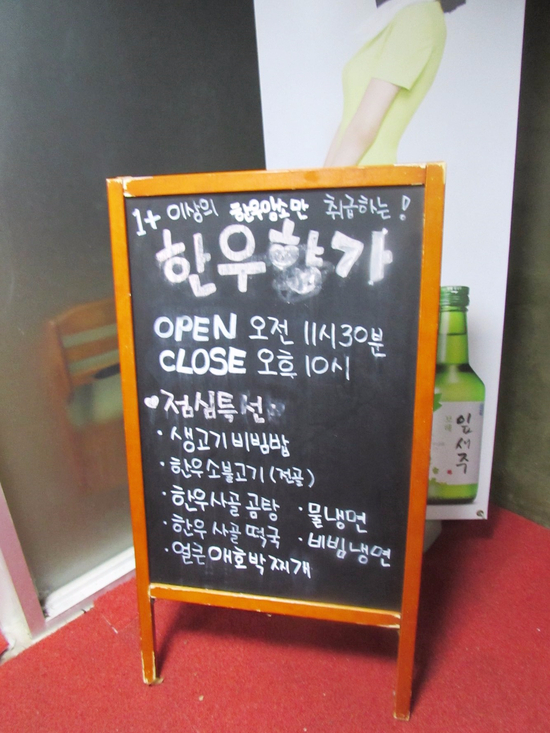 1+ 이상의 한우암소만 취급하는!
한우향가
OPEN 오전 11시30분
CLOSE 오후 10시
♥점심특선
· 생고기비빔밥
· 한우소불고기(전골)
· 한우사골 곰탕 · 물냉면
· 한우 사골 떡국 · 비빔냉면
· 얼큰애호박찌개
잎새주